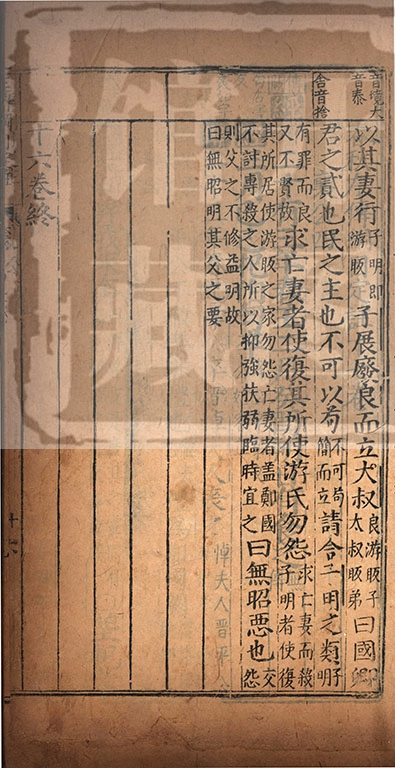 音境大
音泰
舍音捨
以其妻行子明即游販子展廢良而立大叔良游販子太叔販弟曰國卿
君之貳也民之主也不可以苟不可苟簡而立請舍子明之類子明
有罪而良又不賢故求亡妻者使復其所使游氏勿怨求亡妻而殺子明者使復
其所居使游販之家勿怨亡妻者蓋鄭國不討專殺之人所以抑強扶弱臨時宜之曰無昭惡也交怨
則父之不修益明故曰無昭明其父之要
十六卷終
館藏